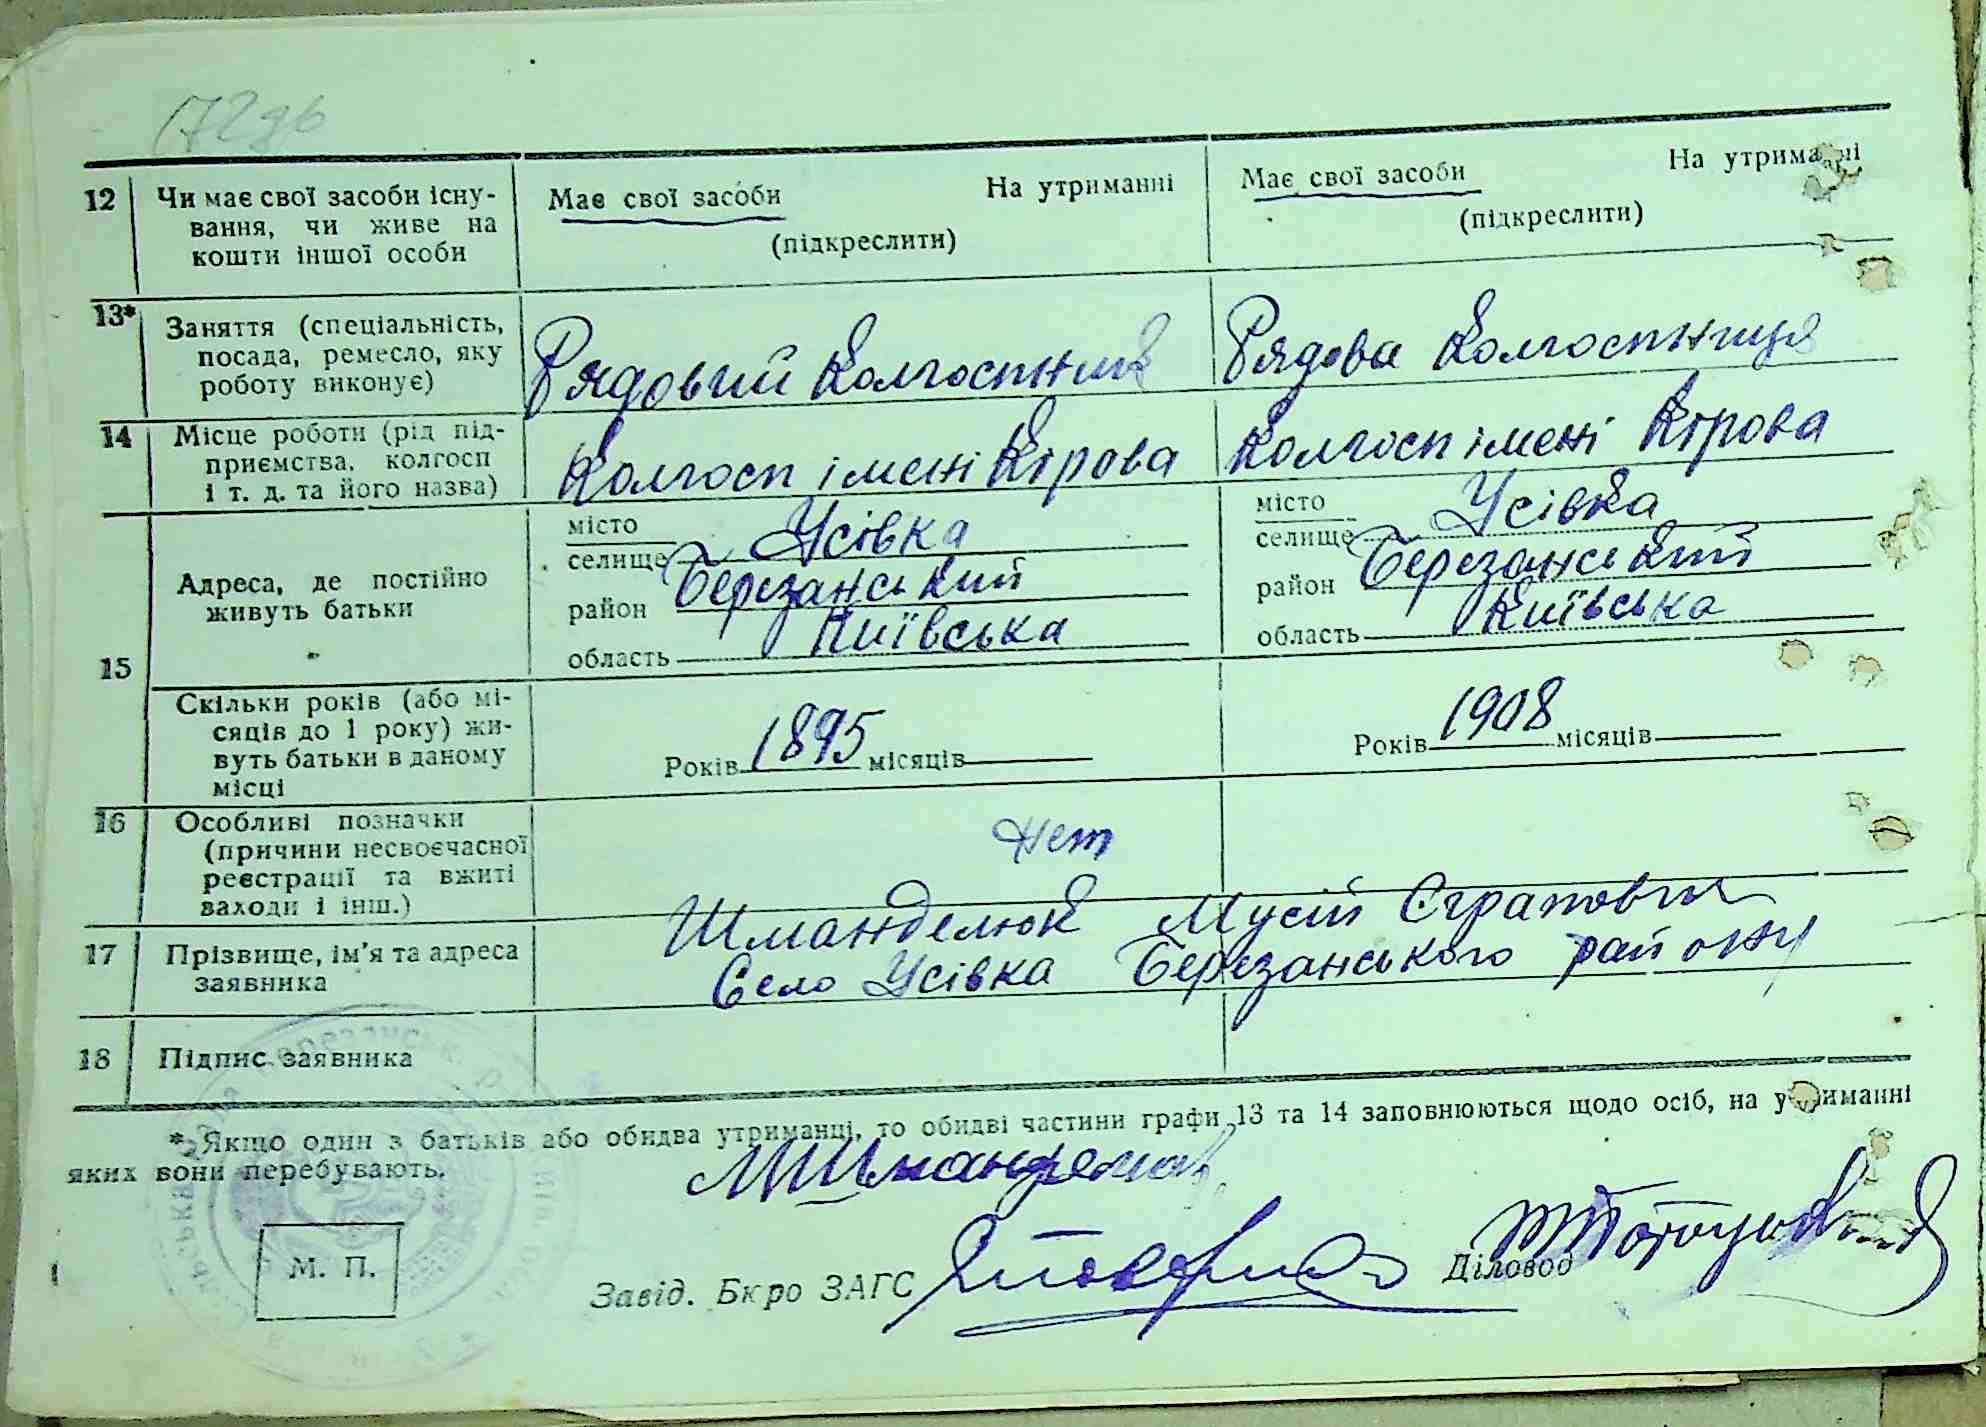 172зв
12 Чи має свої засоби існу-
вання, чи живе на
кошти іншої особи
Має свої засоби На утриманні
(підкреслити)
Має свої засоби На утриманні
(підкреслити)
13* Заняття (спеціальність,
посада, ремесло, яку
роботу виконує)
Рядовий колгоспник
Рядова колгоспниця
14 Місце роботи (рід під-
приємства, колгосп
і т. д. та його назва)
Колгосп імені Кірова
Колгосп імені Кірова
15 Адреса, де постійно
живуть батьки
місто
селище Усівка
район Березанський
область Київська
місто
селище Усівка
район Березанський
область Київська
Скільки років (або мі-
сяців до 1 року) жи-
вуть батьки в даному
місці
Років 1895 місяців
Років 1908 місяців
16 Особливі позначки
(причини несвоєчасної
реєстрації та вжиті
заходи і інш.)
нет
17 Прізвище, ім'я та адреса
заявника
Шманделюк Мусій
Село Усівка Березанського району
18 Підпис заявника
* Якщо один з батьків або обидва утриманці, то обидві частини графи 13 та 14 заповнюються щодо осіб, на утриманні
яких вони перебувають.
М. П.
Завід. Бюро ЗАГС
Діловод